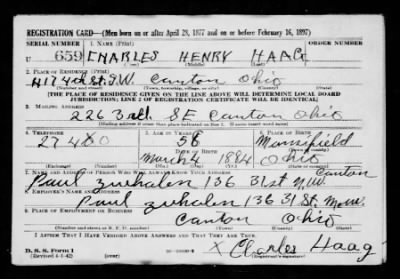 REGISTRATION CARD—(Men born on or after April 28, 1877 and on or before February 16, 1897)
SERIAL NUMBER 1. NAME (Print) ORDER NUMBER
U 659 CHARLES HENRY HAAG
(First) (Middle) (Last)
2. PLACE OF RESIDENCE (Print)
417 4th St. S.W. Canton Ohio
(Number and street) (Town, township, village, or city) (County) (State)
[THE PLACE OF RESIDENCE GIVEN ON THE LINE ABOVE WILL DETERMINE LOCAL BOARD
JURISDICTION; LINE 2 OF REGISTRATION CERTIFICATE WILL BE IDENTICAL]
3. MAILING ADDRESS
226 3rd. SE Canton Ohio
(Mailing address if other than place indicated on line 2. If same insert word same)
4. TELEPHONE 5. AGE IN YEARS 6. PLACE OF BIRTH
58 Mansfield
DATE OF BIRTH
March 4 1884 Ohio
7. NAME AND ADDRESS OF PERSON WHO WILL ALWAYS KNOW YOUR ADDRESS
Canton
Paul 136 31st N.W.
8. EMPLOYER'S NAME AND ADDRESS
Paul 136 31 St.
9. PLACE OF EMPLOYMENT OR BUSINESS
Canton Ohio
(Number and street or R. F. D. number) (Town) (County) (State)
I AFFIRM THAT I HAVE VERIFIED ABOVE ANSWERS AND THAT THEY ARE TRUE.
D. S. S. Form 1
(Revised 4-1-42) (over)
X Charles Haag